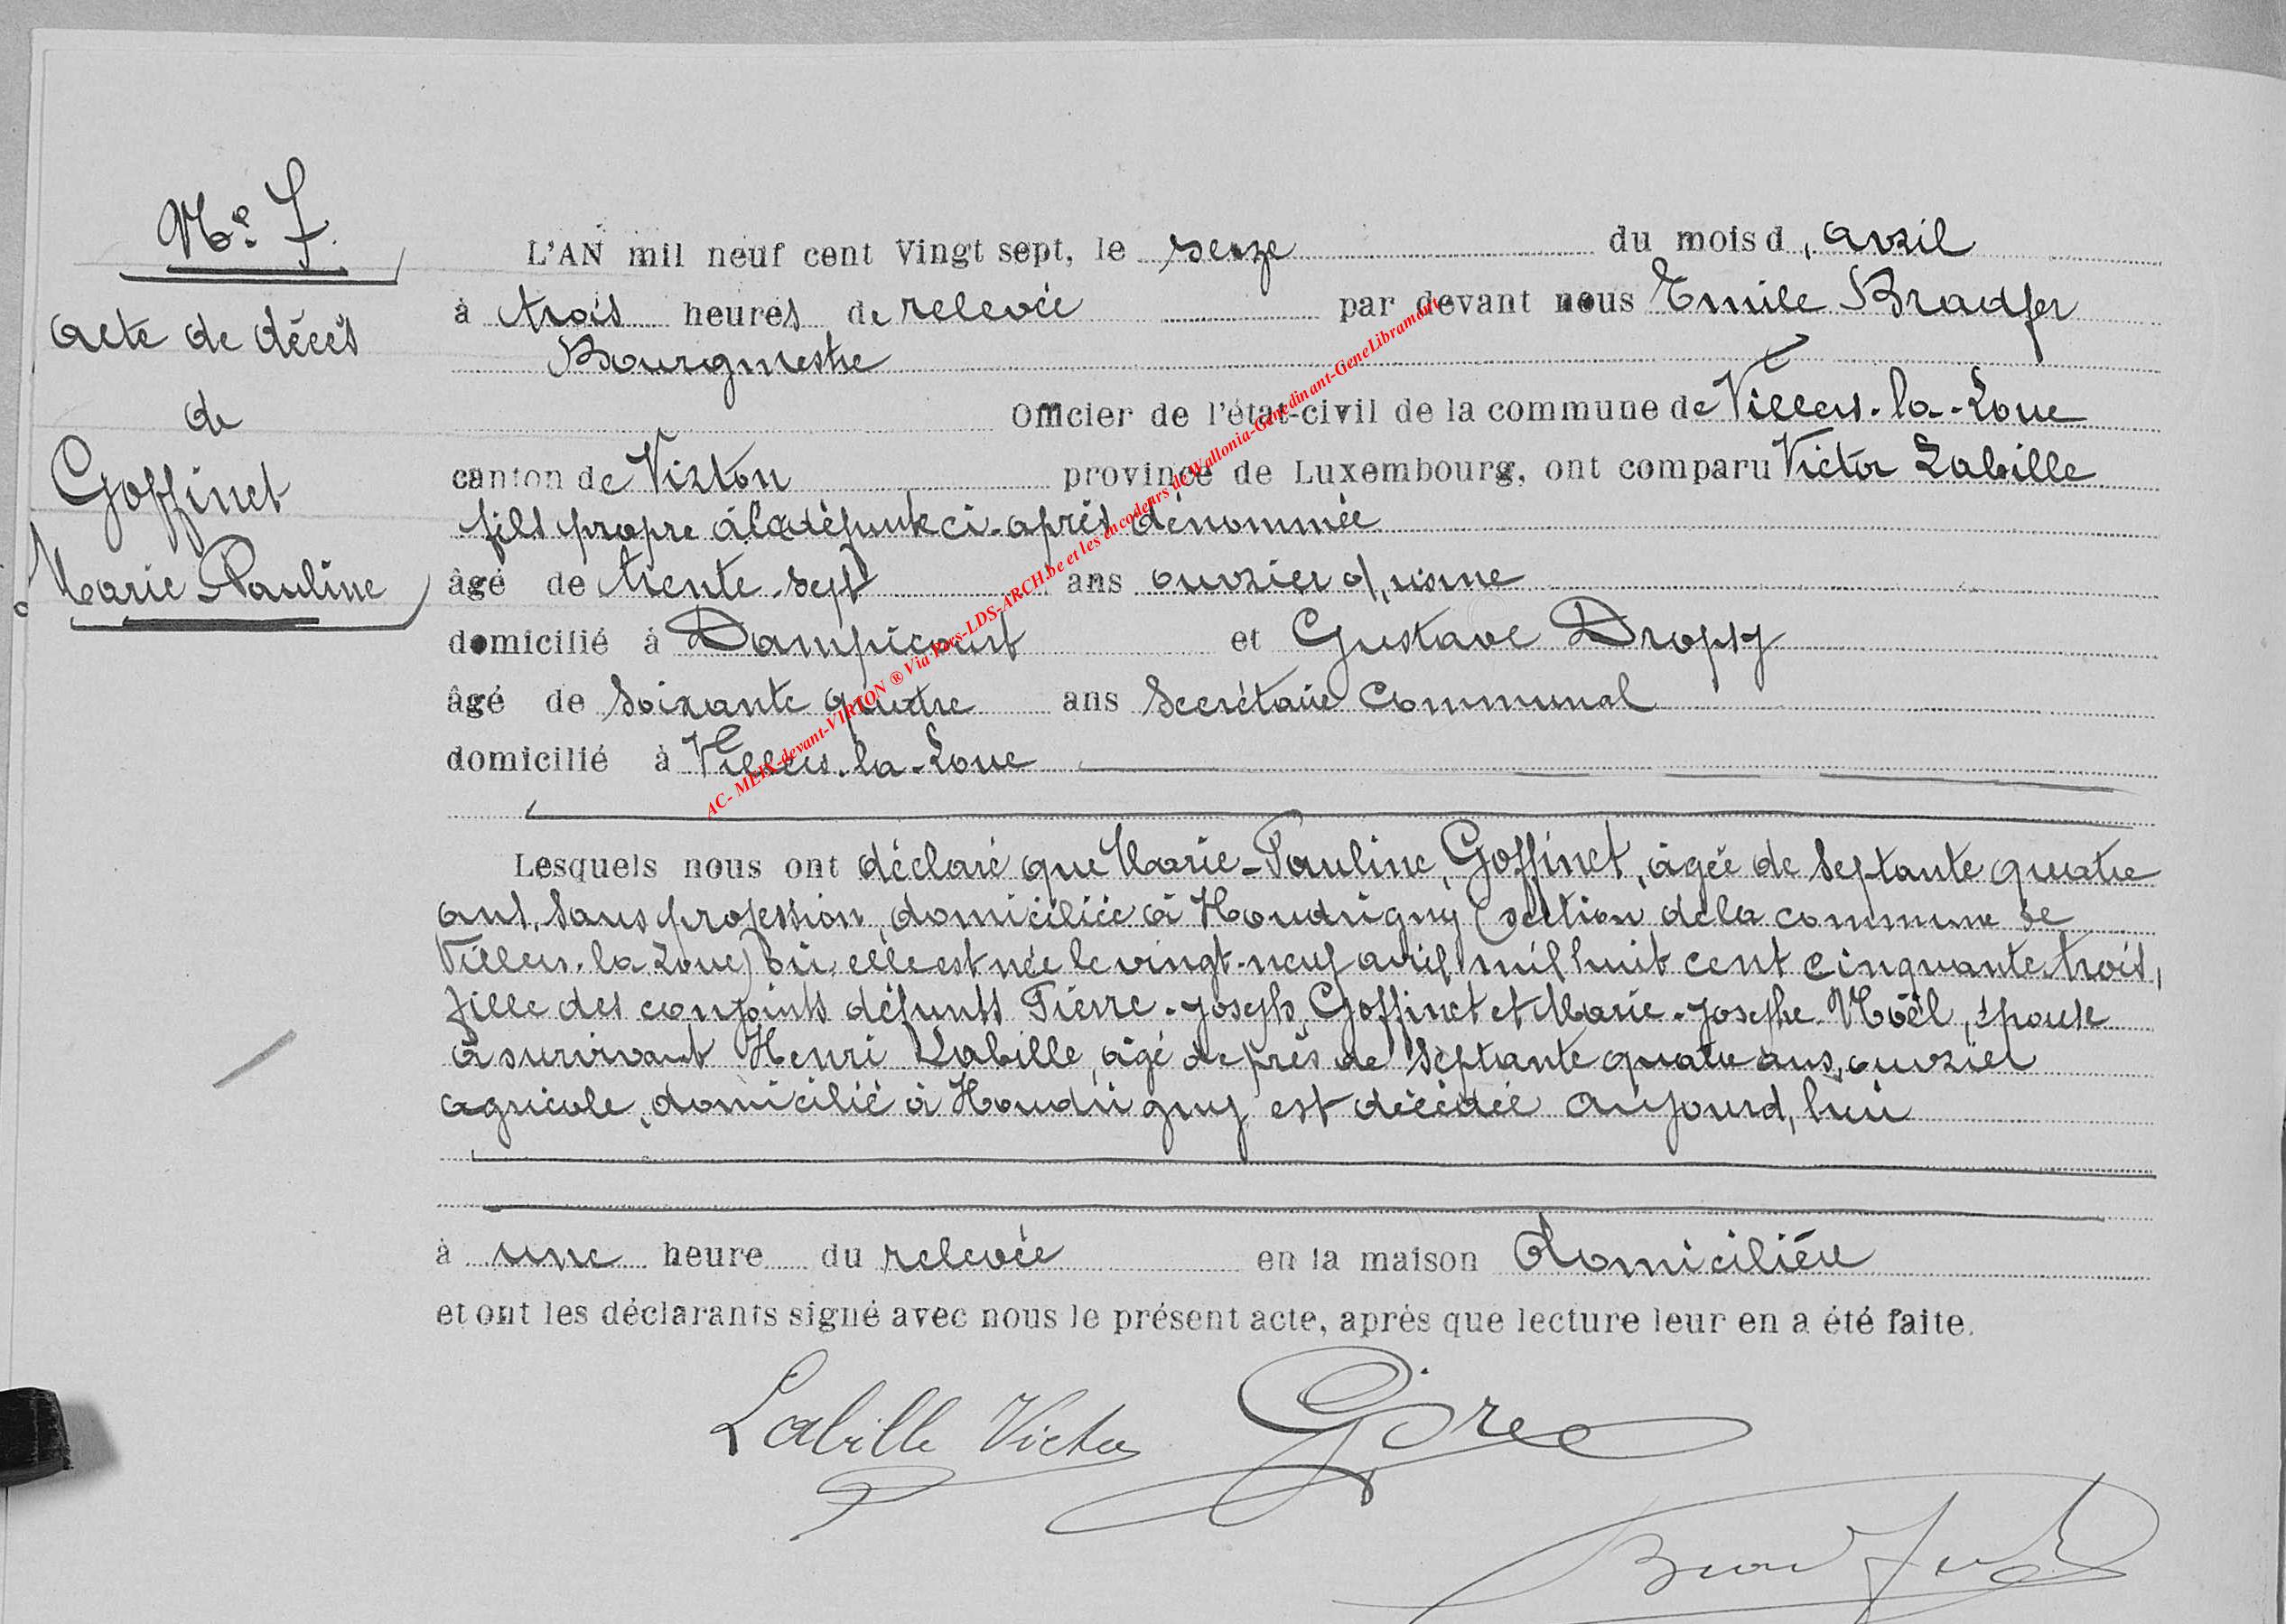 N° 7.
Acte de décès
de
Goffinet
Marie Pauline
L'AN mil neuf cent Vingt sept, le seize du mois d, avril
à trois heures de relevée par devant nous Emile Bradfer
Bourgmestre
Officier de l'état-civil de la commune de Villers-la-Loue
canton de Virton province de Luxembourg, ont comparu Victor Labille
fils propre à la défunte ci-après dénommée
âgé de trente-sept ans ouvrier d'usine
domicilié à Dampicourt et Gustave Dropsy
âgé de soixante quatre ans Secrétaire Communal
domicilié à Villers-la-Loue
Lesquels nous ont déclaré que Marie-Pauline, Goffinet, âgée de septante quatre
ans, sans profession, domiciliée à Houdrigny (section de la commune de
Villers-la-Loue) où elle est née le vingt-neuf avril mil huit cent cinquante trois,
fille des conjoints défunts Pierre-Joseph Goffinet et Marie-Josephe Noël, épouse
à survivant Henri Labille, âgé de près de septante quatre ans, ouvrier
agricole, domicilié à Houdrigny est décédée aujourd'hui
à une heure du relevée en la maison domicilière
et ont les déclarants signé avec nous le présent acte, après que lecture leur en a été faite.
Labille Victor
AC- MEIX-devant-VIRTON ® Via Vers-LDS-ARCH.be et les encodeurs de Wallonia-Genedinant-GeneLibramont